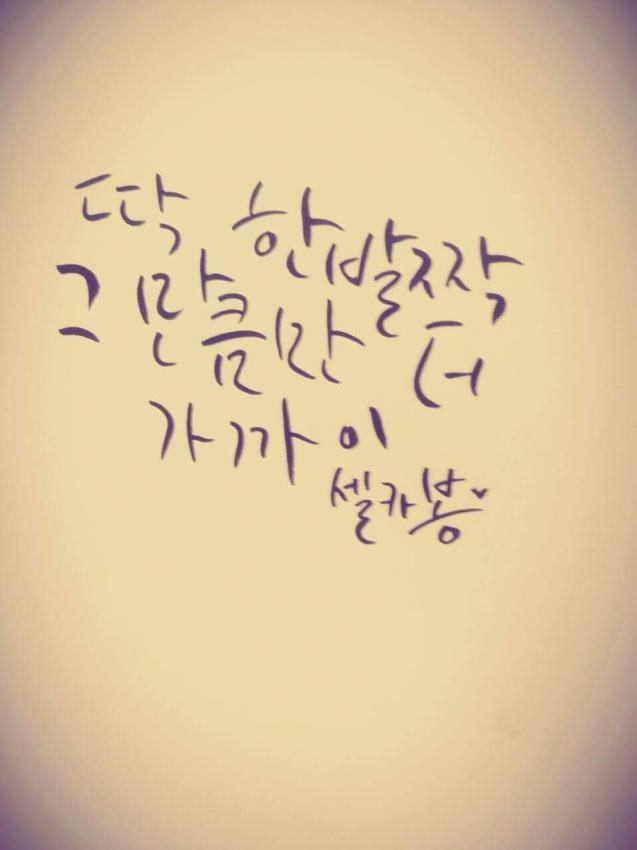 딱 한발짝
그만큼만 더
가까이
셀카봉